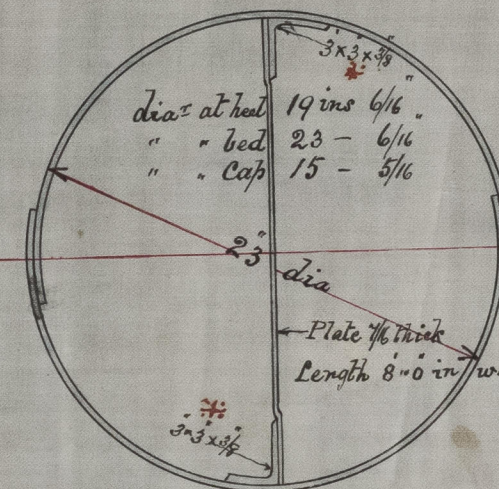 3" × 3" × 3/8"
diar at heel 19 ins 6/16"
" " bed 23 - 6/16"
" " Cap 15 - 5/16
23" dia
Plate 7/16 thick
Length 8'-0" in
3" × 3" × 3/8"